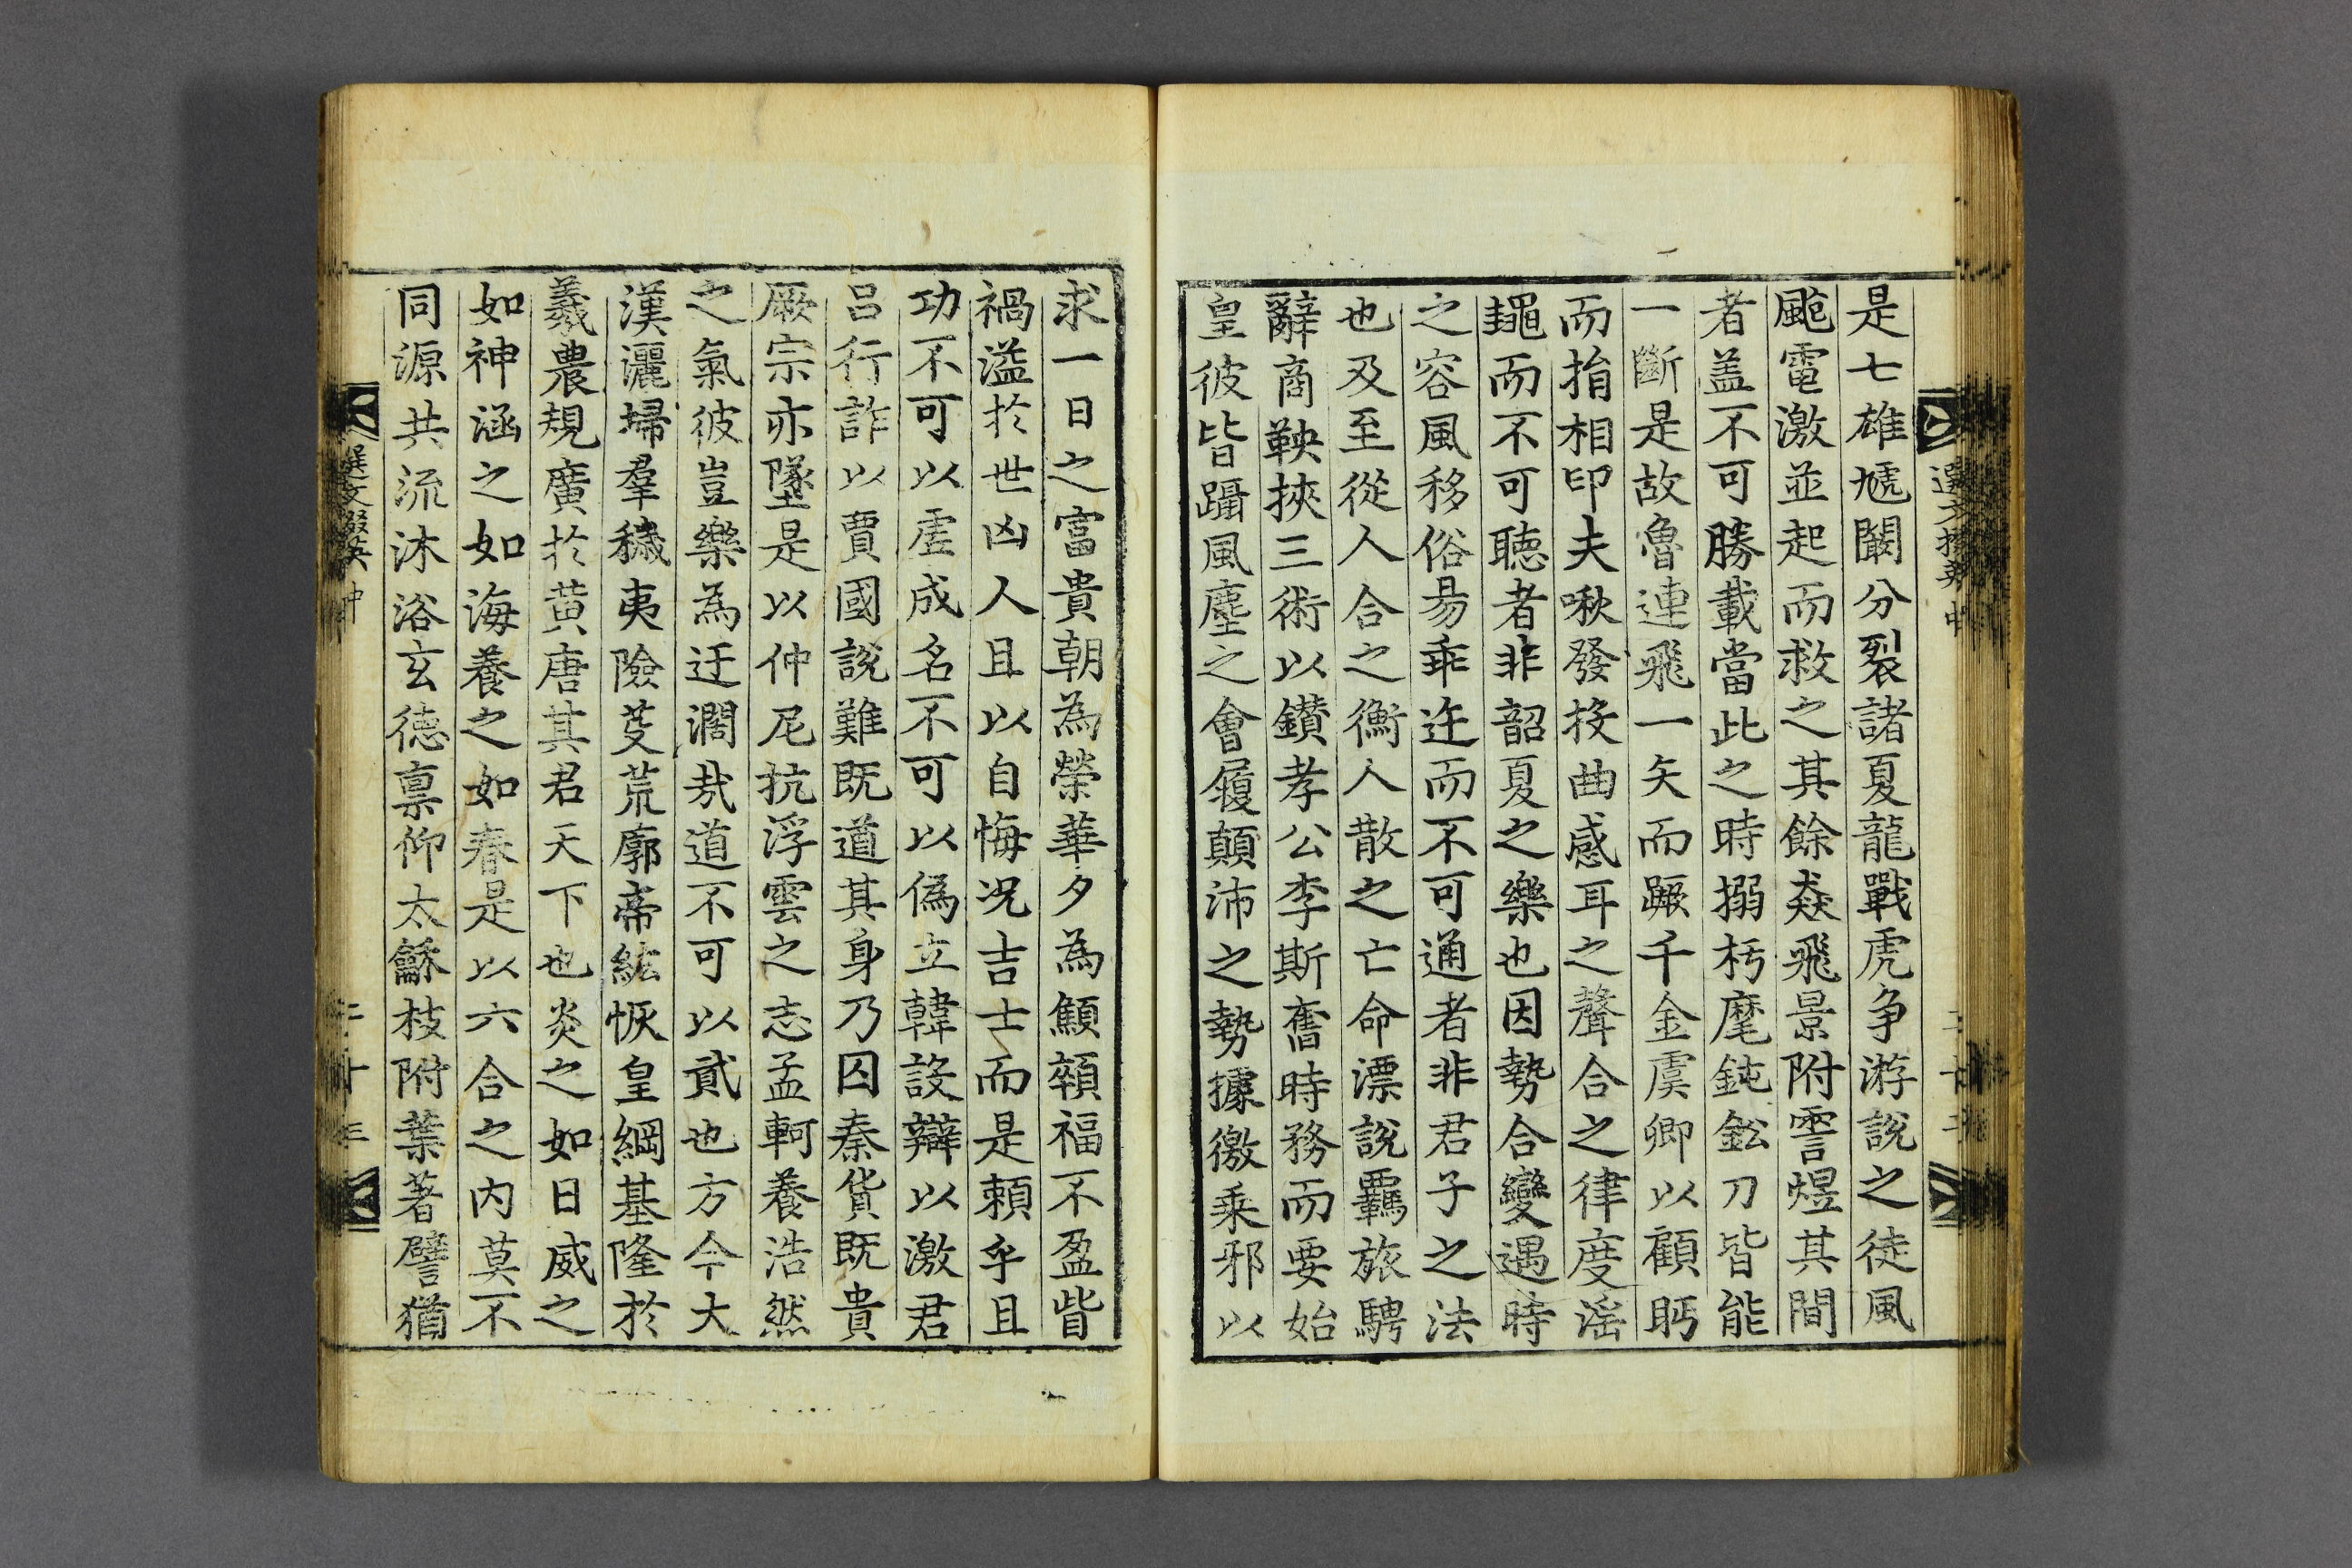 是七雄虓闞分裂諸夏龍戰虎争游說之徒風
颮電激並起而救之其餘猋飛景附霅煜其間
者盖不可勝載當此之時搦朽磨鈍鈆刀皆能
一斷是故魯連飛一矢而蹶千金虞卿以顧眄
而捐相印夫啾發投曲感耳之聲合之律度滛
䵷而不可聴者非韶夏之樂也因勢合變遇時
之容風移俗昜乖迕而不可通者非君子之法
也及至從人合之衡人散之亡命漂說羈旅騁
辭商鞅挾三術以鑚孝公李斯奮時務而要始
皇彼皆躡風塵之會履顛沛之勢據徼乘邪以
求一日之富貴朝為榮華夕為顦顇福不盈眥
禍溢於世凶人且以自悔况吉士而是頼乎且
功不可以虛成名不可以偽立韓設辯以激君
吕行詐以賈國說難既道其身乃囚秦貨既貴
厥宗亦墜是以仲尼抗浮雲之志孟軻養浩然
之氣彼豈樂為迂濶㢤道不可以貳也方今大
漢灑埽羣穢夷險芟荒廓帝紘恢皇綱基隆於
羲農規廣於黄唐其君天下也炎之如日威之
如神涵之如海養之如春是以六合之内莫不
同源共流沐浴玄徳禀仰太龢枝附葉著譬猶
選文掇英 中